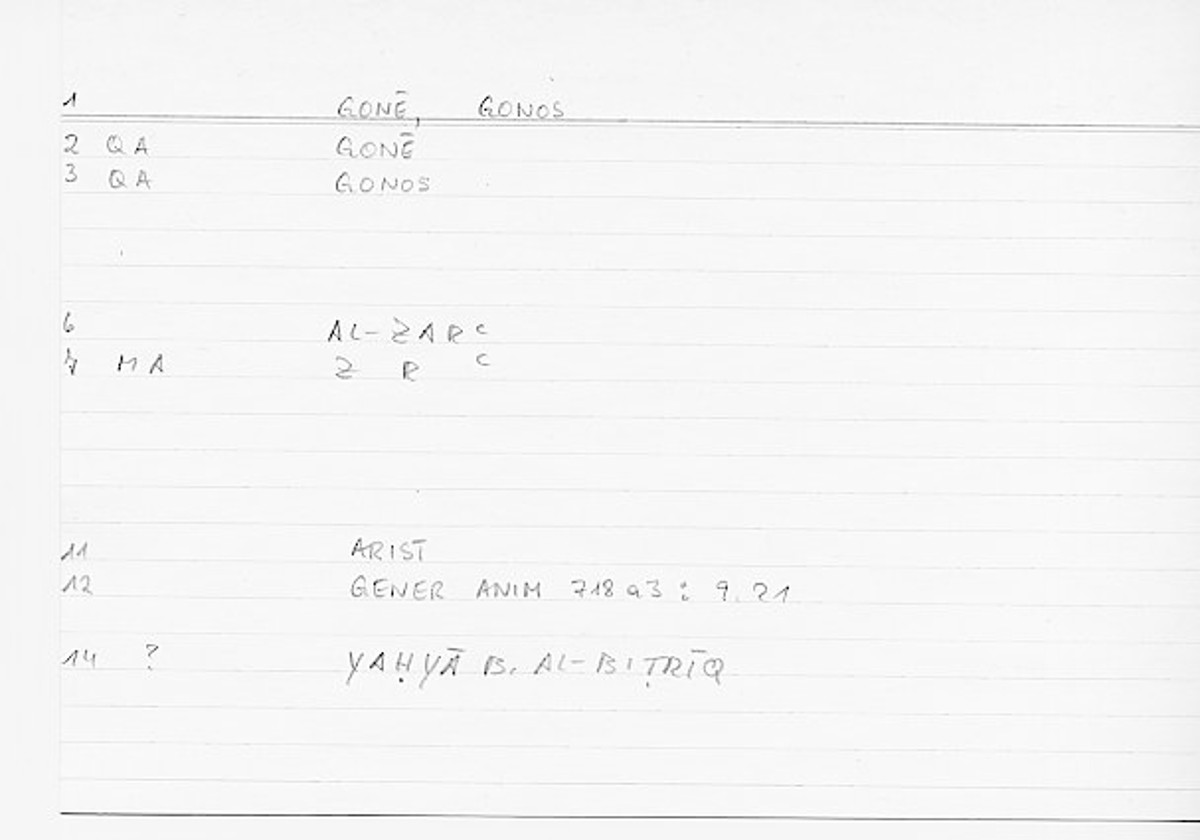 1 GONĒ, GONOS
2 QA GONĒ
3 QA GONOS
6 AL-ZARᶜ
7 MA Z R ᶜ
11 ARIST
12 GENER ANIM 718 a3 : 9.21
14 ? YAḤYĀ B. AL-BIṬRĪQ